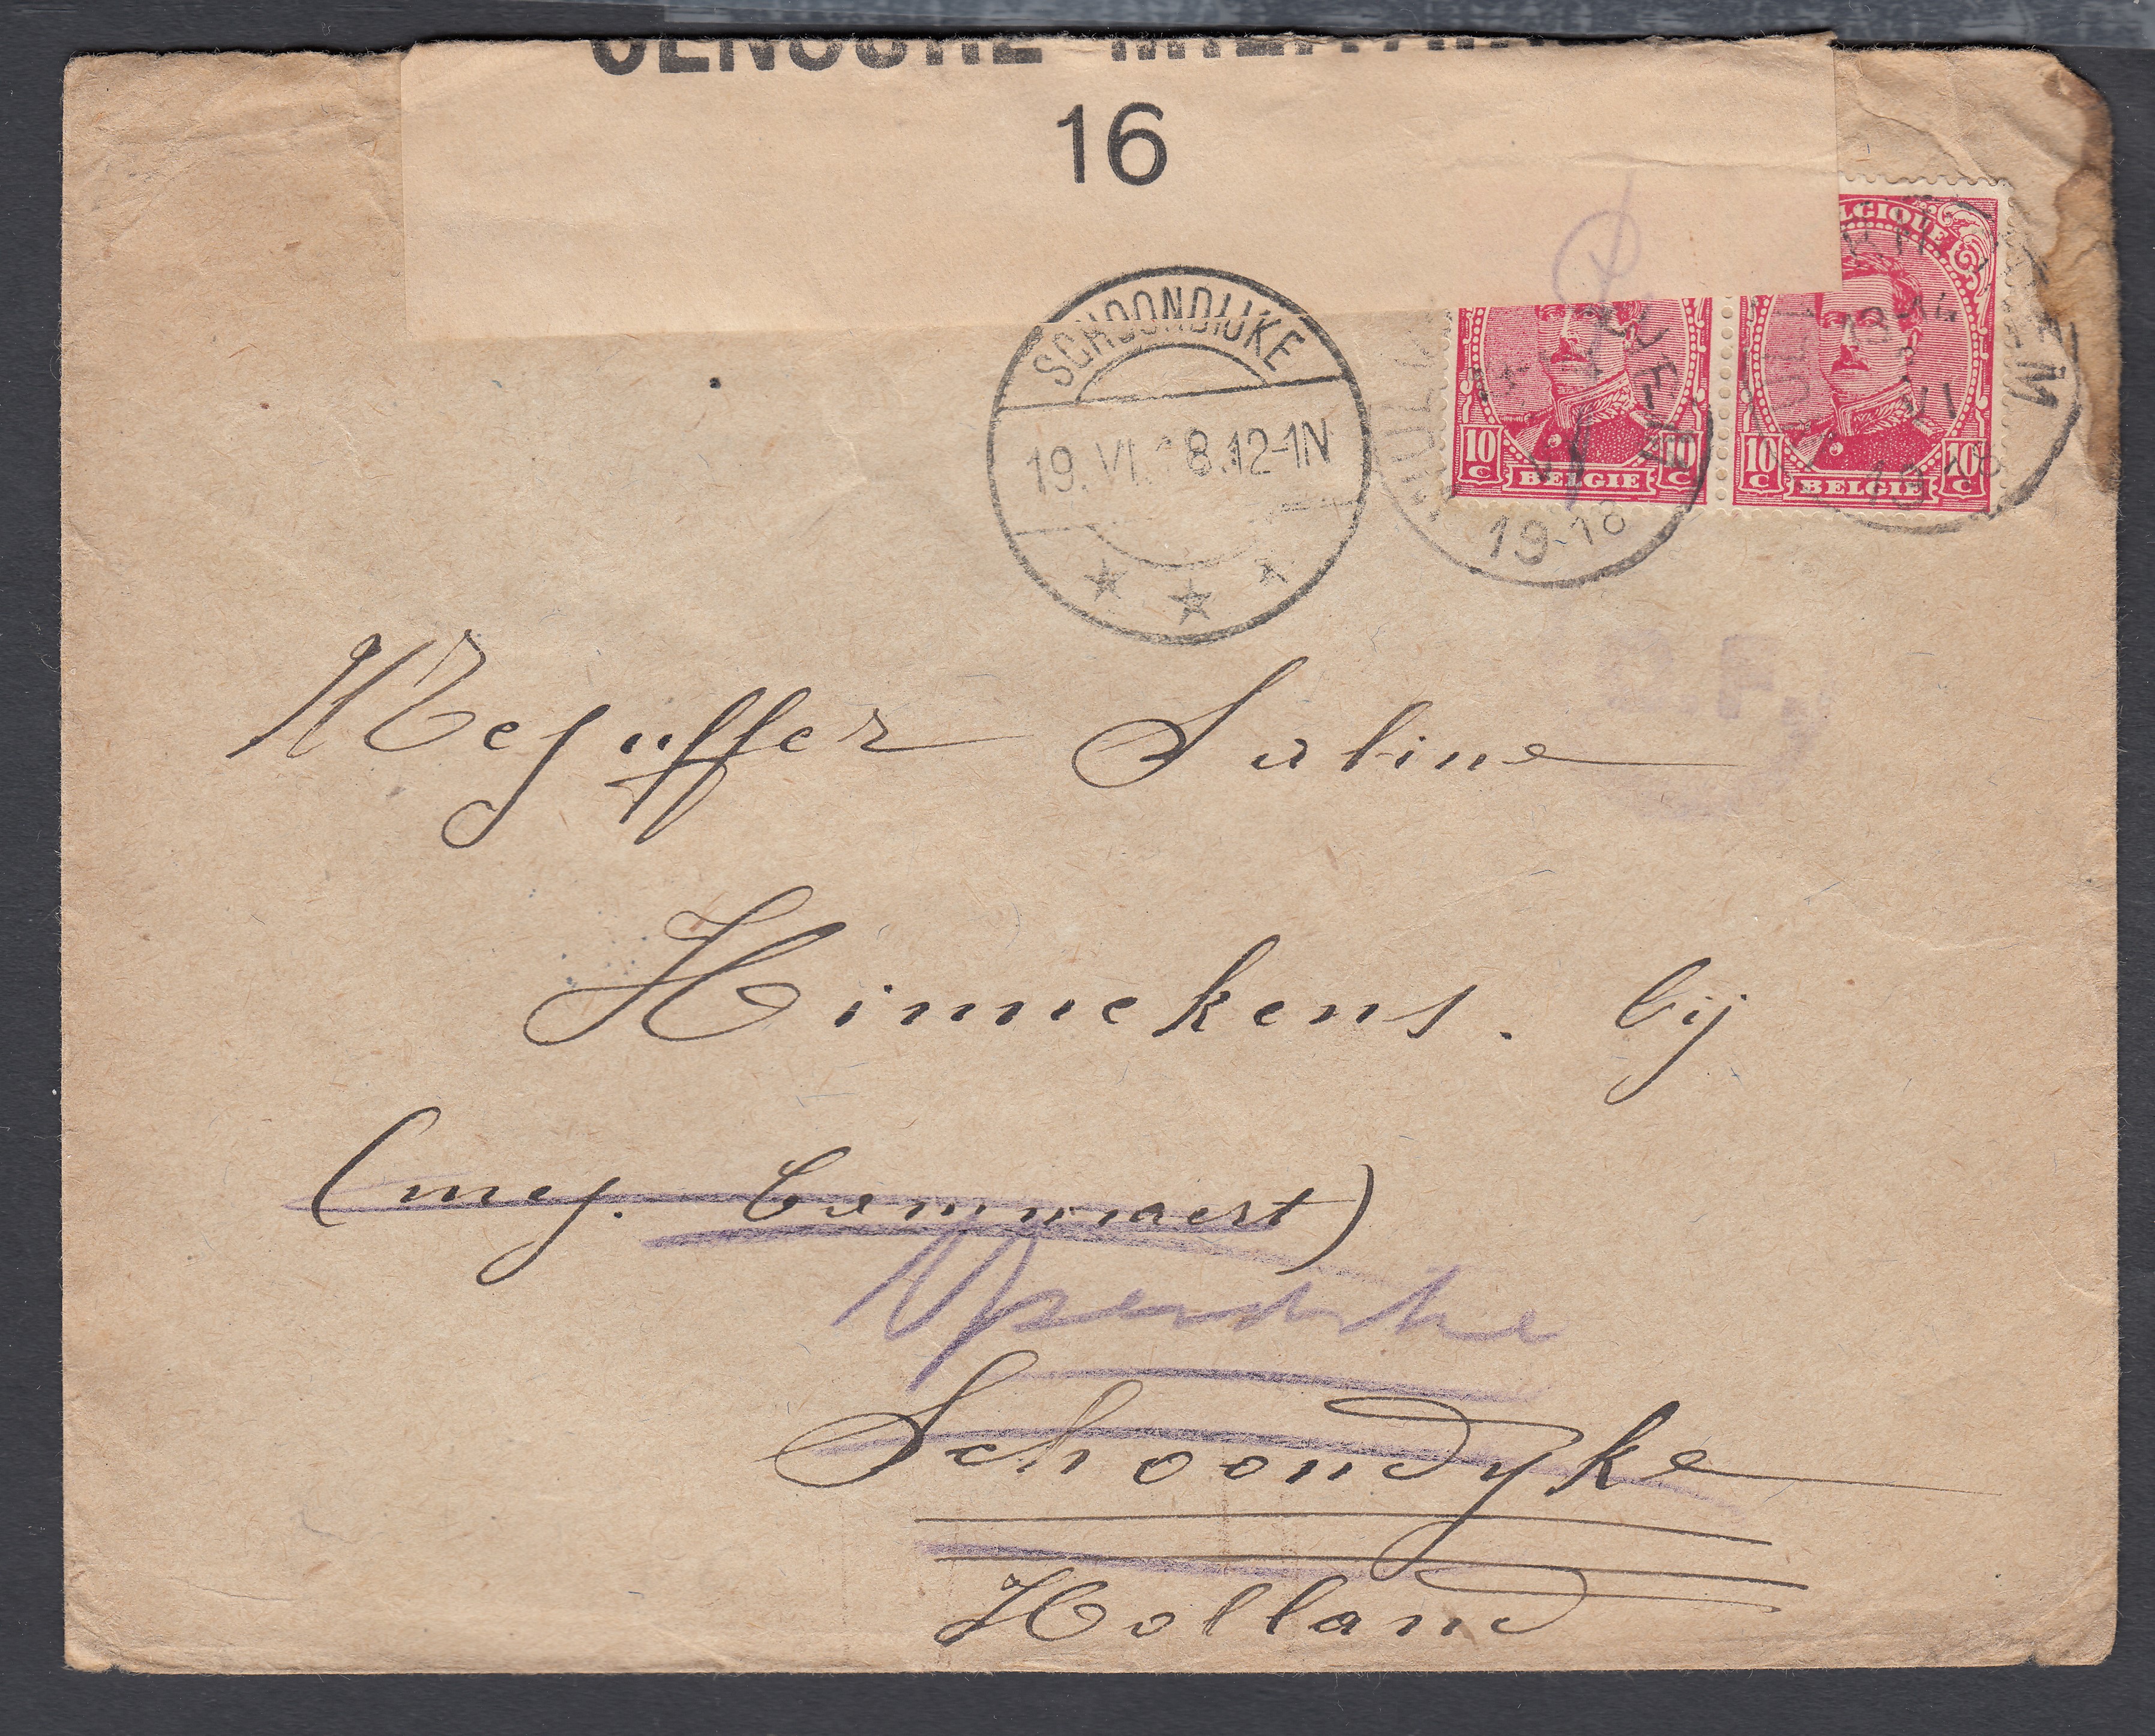 CENSURE MILITAIRE
16
BELGIQUE
SCHOONDIJKE
19.VI.18.12-1N
10 C BELGIE 10 C
10 C BELGIE 10 C
1918
1918
Mejuffer Sabine
Hinnekens. bij
(mej. Commaert)
Schoondyke
Holland